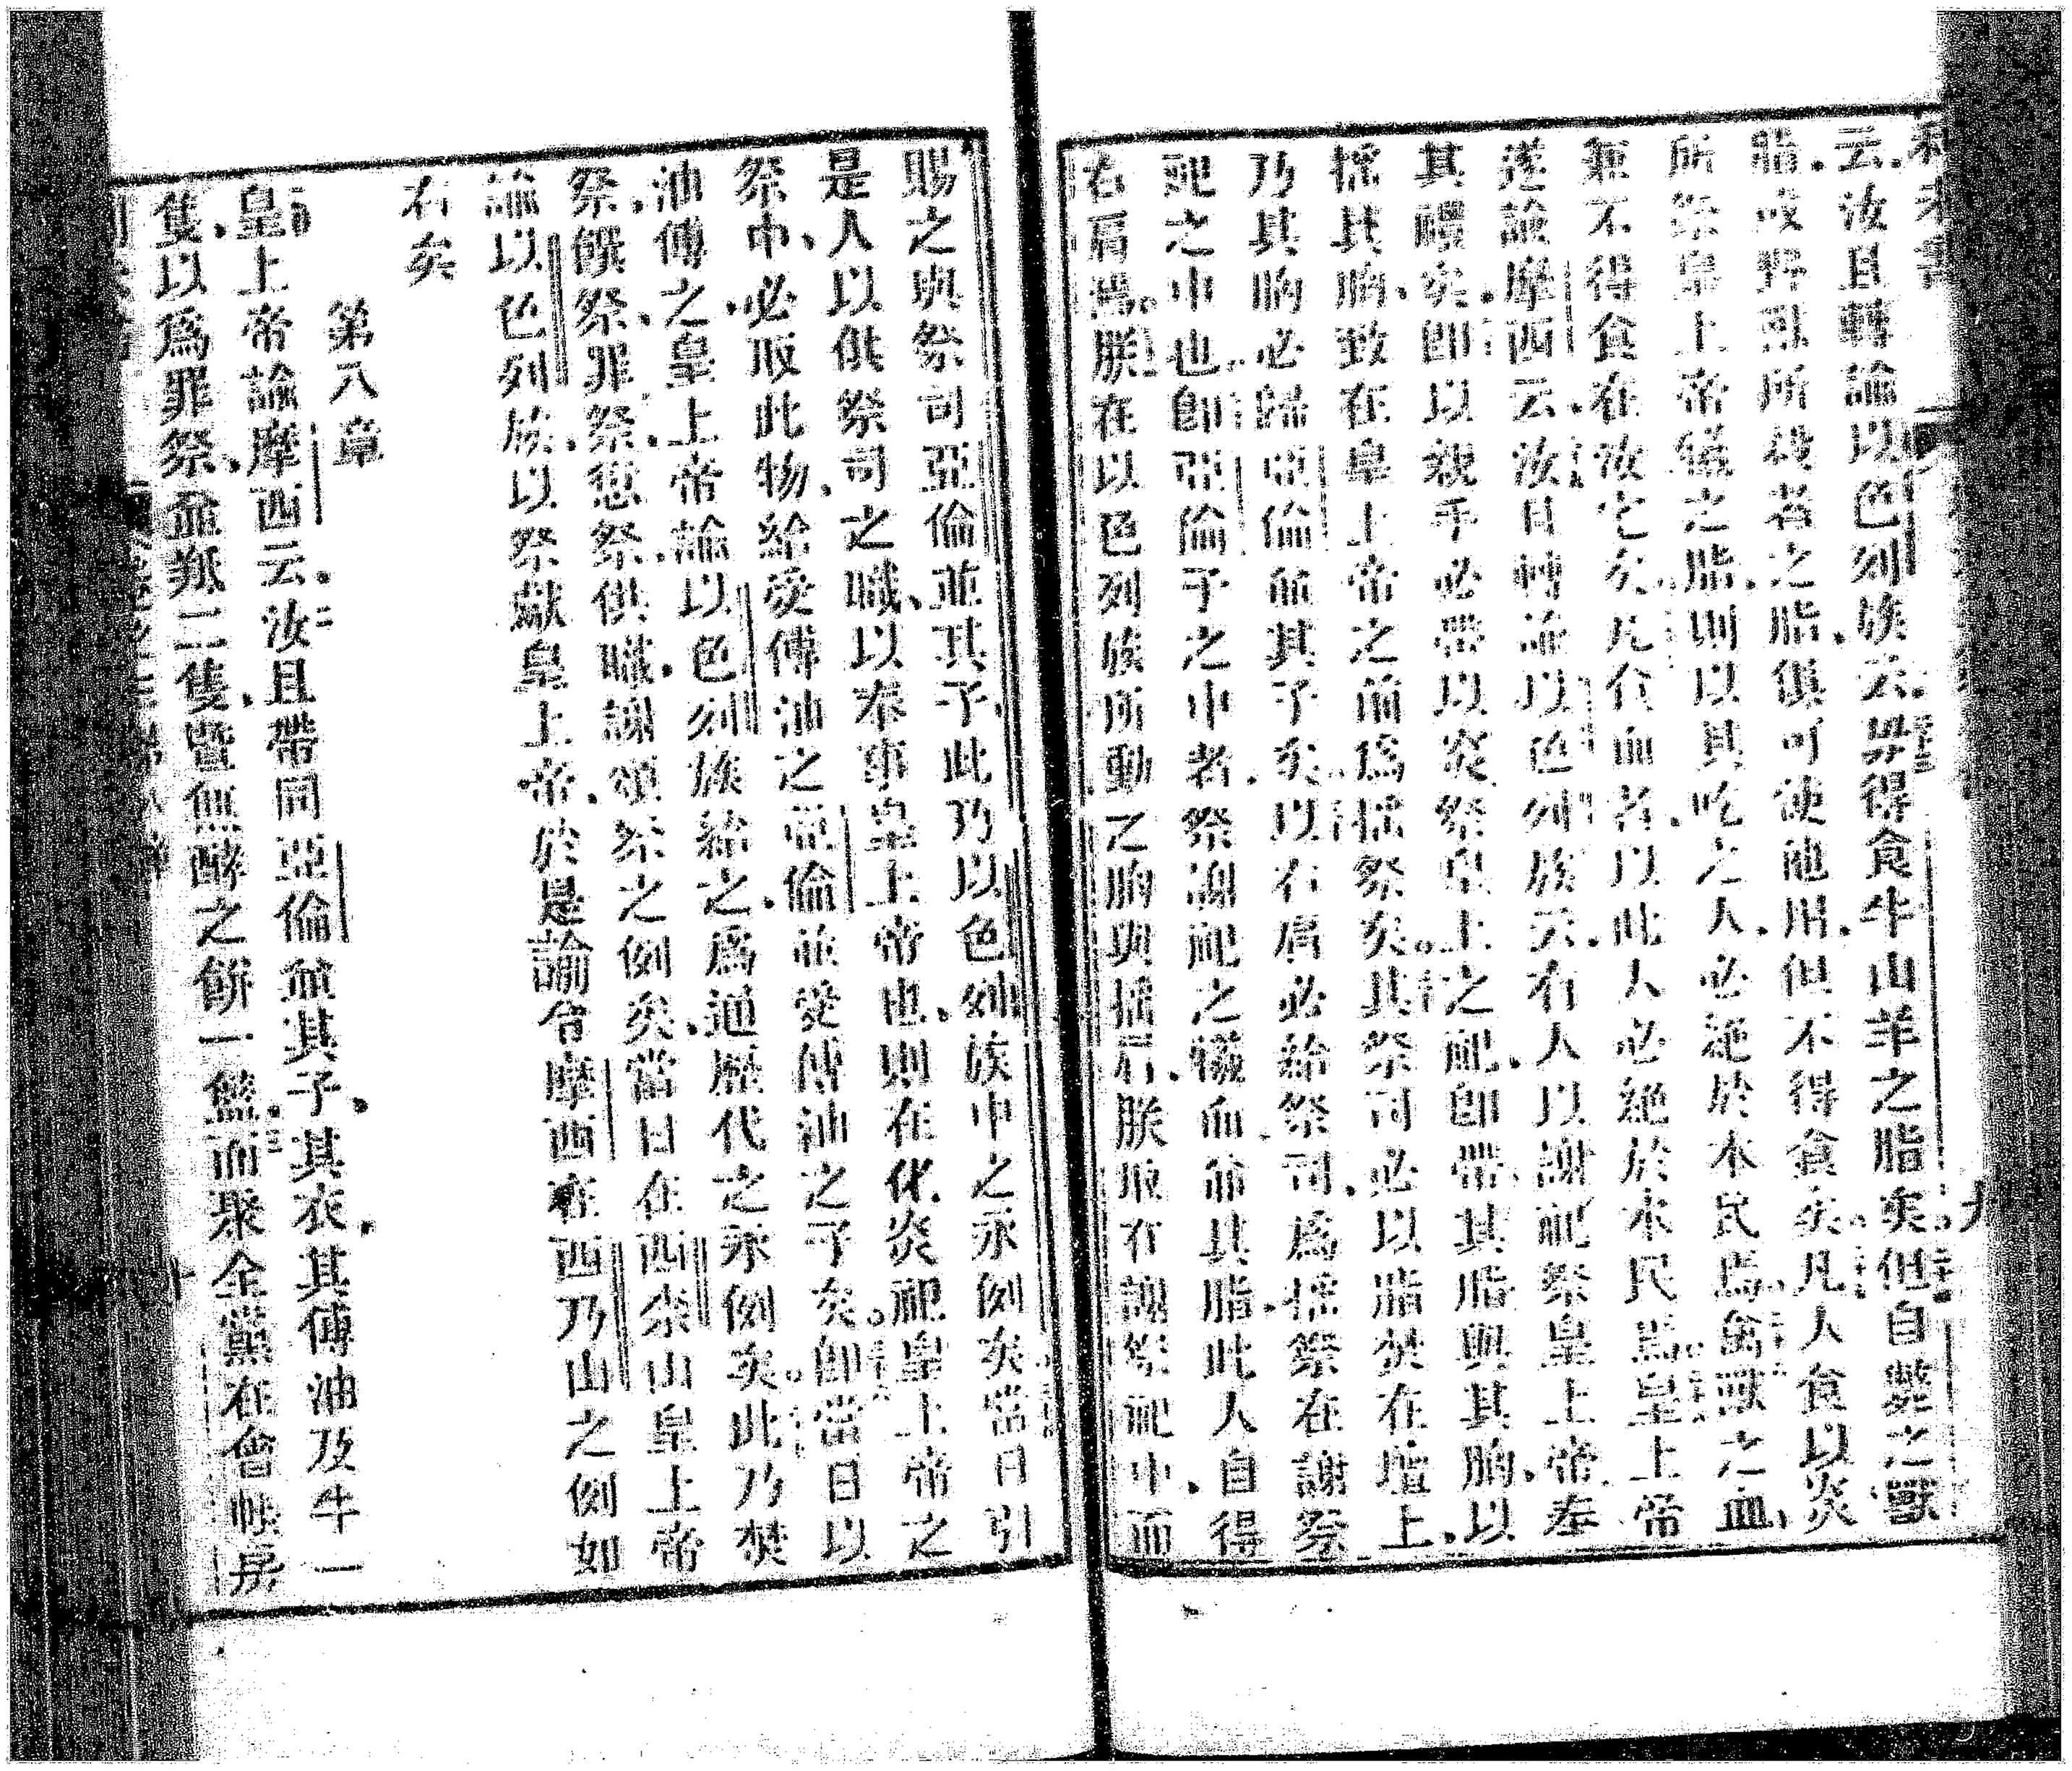 云汝且轉諭以色列族云毋得食牛山羊之脂矣但自斃之獸
脂或野獸所殺者之脂俱可使他用但不得食矣凡人食以炎
所祭皇上帝犧之脂則以其吃之人必絕於本民焉禽獸之血
兼不得食在汝宅矣凡食血者以此人必絕於本民焉皇上帝
遂諭摩西云汝且轉諭以色列族云有人以謝祀祭皇上帝奉
其禮矣即以親手必帶以炎祭皇上之祀即帶其脂與其胸以
搖其胸致在皇上帝之前為搖祭矣其祭司必以脂焚在壇上
乃其胸必歸亞倫並其子矣以右肩必給祭司為搖祭在謝祭
祀之中也即亞倫子之中者祭謝祀之犧血並其脂此人自得
右肩焉朕在以色列族所動之胸與搖肩朕取在謝祭祀中而
賜之與祭司亞倫並其子此乃以色列族中之永例矣當日引
是人以供祭司之職以奉事皇上帝也則在化炎祀皇上帝之
祭中必取此物給受傅油之亞倫並受傅油之子矣即當日以
油傅之皇上帝諭以色列族給之為通歷代之永例矣此乃焚
祭饌祭罪祭愆祭供職謝頌祭之例矣當日在西柰山皇上帝
諭以色列族以祭獻皇上帝於是諭令摩西在西乃山之例如
右矣
第八章
皇上帝諭摩西云汝且帶同亞倫並其子其衣其傅油及牛一
隻以為罪祭並羝二隻暨無酵之餅一籃而聚全黨在會帳房